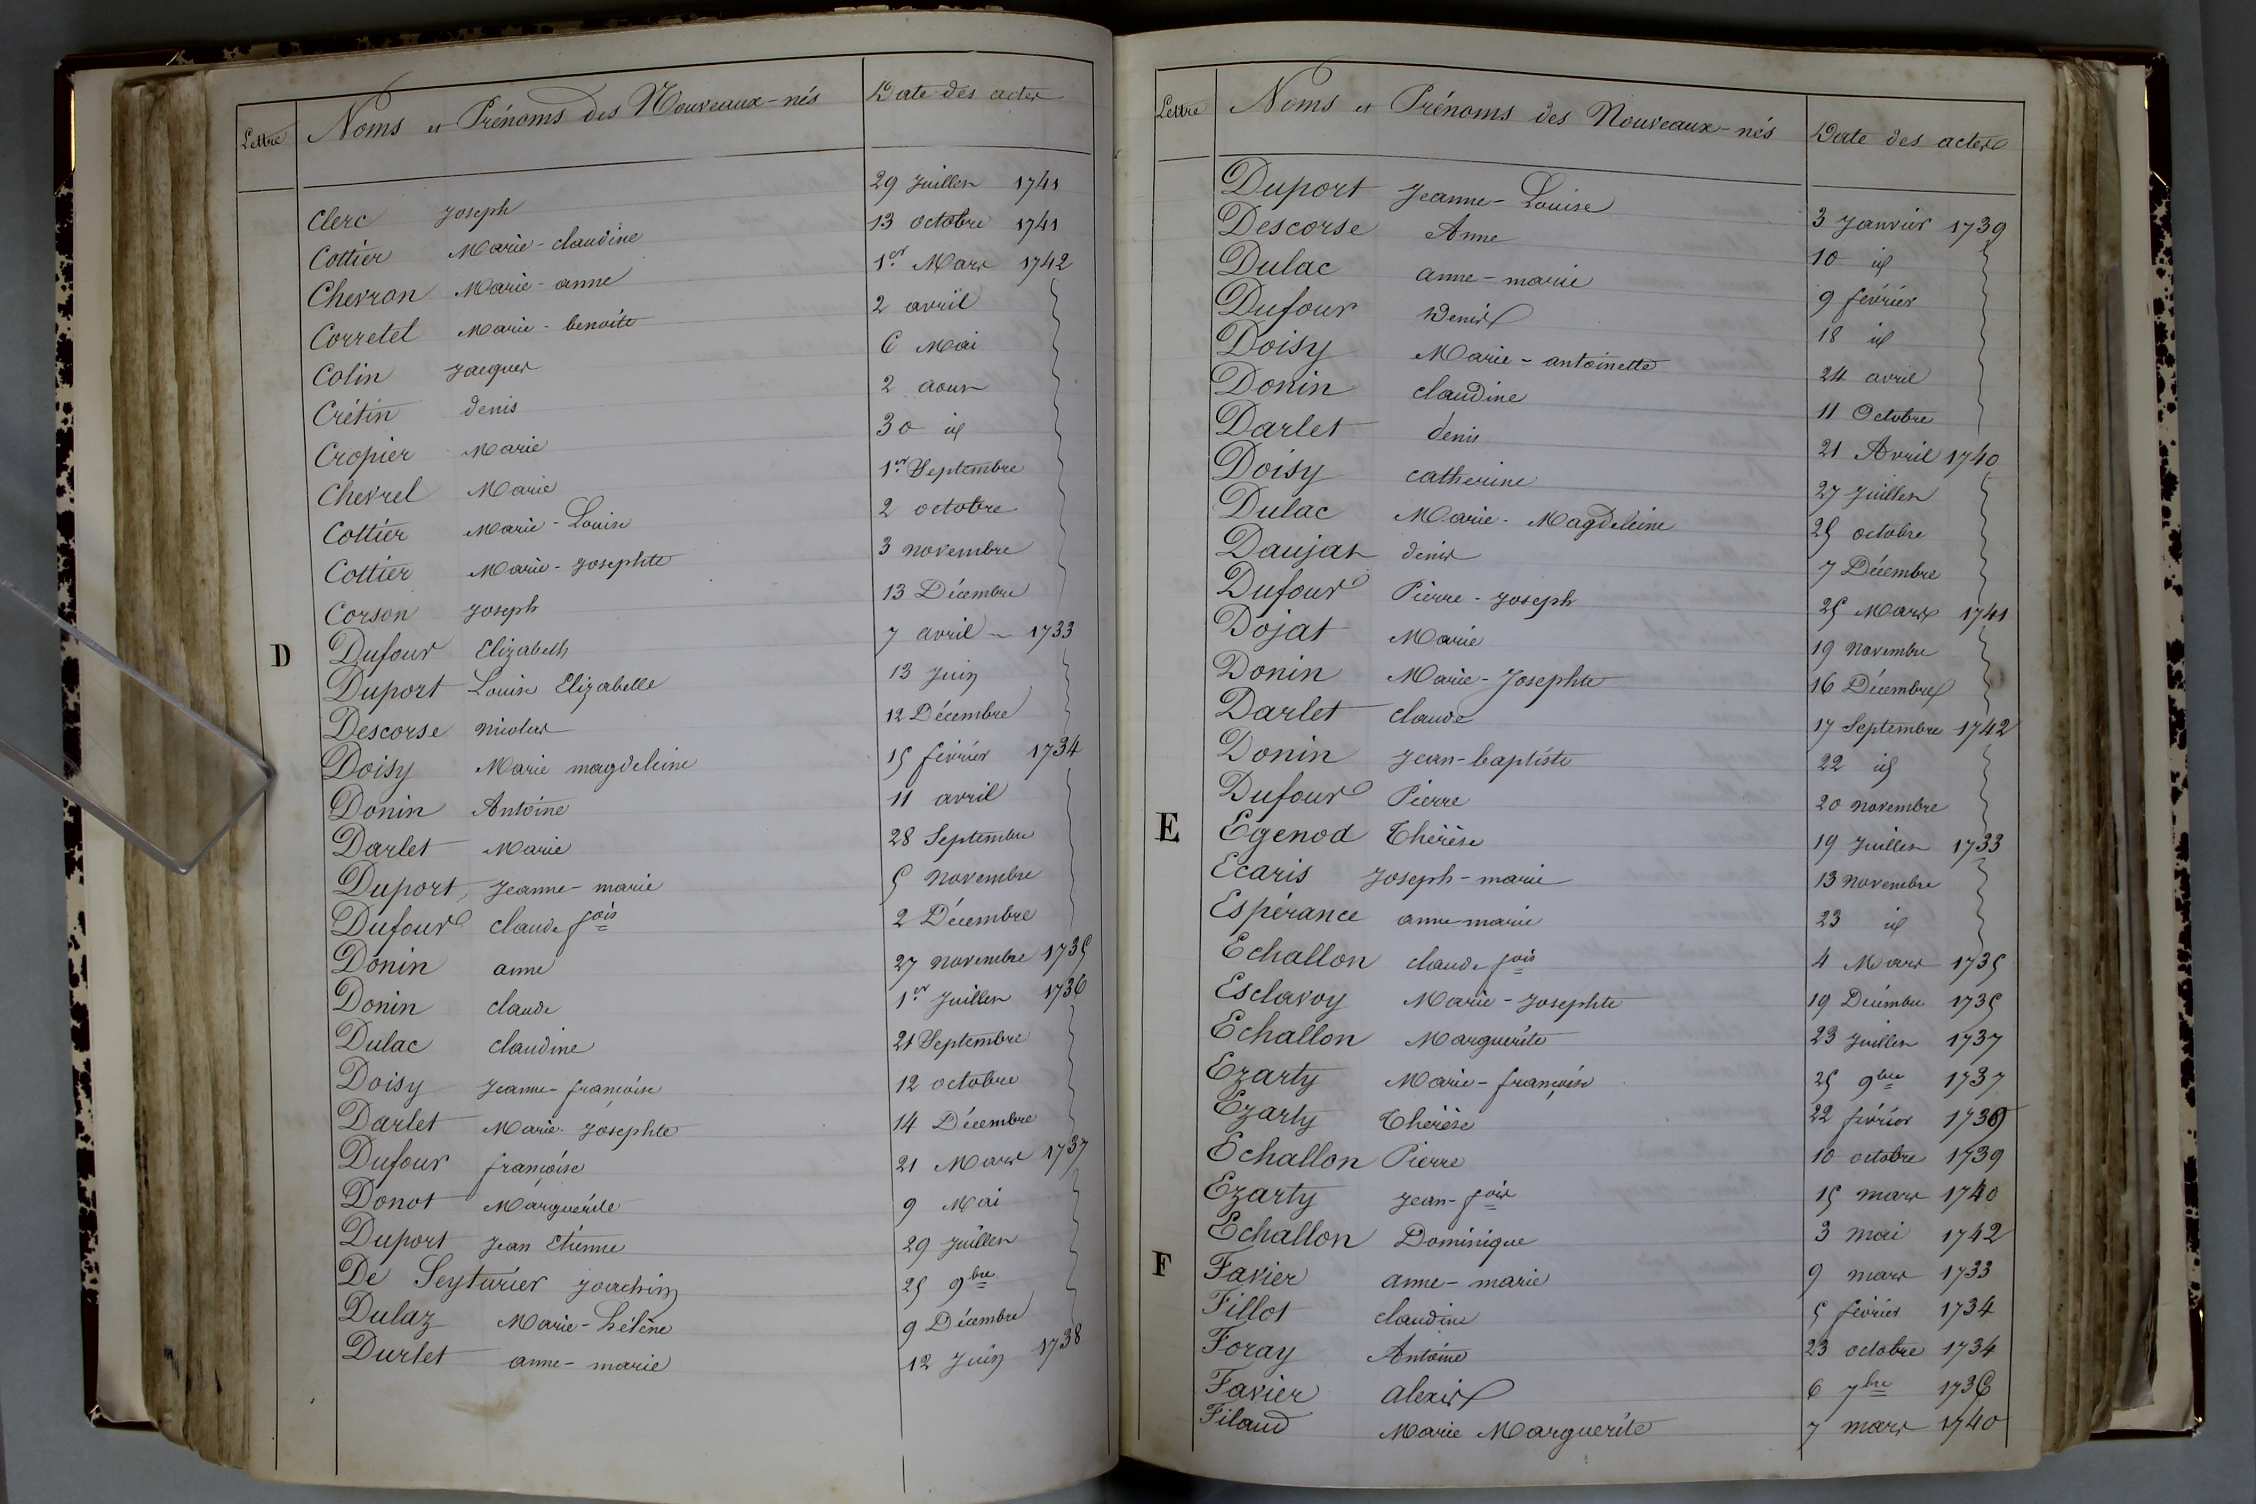 Lettre Noms et Prénoms des Nouveaux-nés Date des actes
Clerc Joseph 29 Juillet 1741
Cottier Marie-claudine 13 octobre 1741
Chevron Marie-anne 1er Mars 1742
Corretel Marie-benoite 2 avril
Colin Jacques 6 Mai
Crétin denis 2 aout
Cropier Marie 30 id
Chevrel Marie 1er Septembre
Cottier Marie-Louise 2 octobre
Cottier Marie-Josephte 3 novembre
Corson Joseph 13 Décembre
D Dufour Elizabeth 7 avril 1733
Duport Louise Elizabelle 13 Juin
Descorse nicolas 12 Décembre
Doisy Marie magdeleine 15 février 1734
Donin Antoine 11 avril
Darlet Marie 28 Septembre
Duport, Jeanne-marie 5 novembre
Dufour claude fois 2 Décembre
Donin anne 27 novembre 1735
Donin claude 1er Juillet 1736
Dulac claudine 21 Septembre
Doisy Jeanne-françoise 12 octobre
Darlet Marie-Josephte 14 Décembre
Dufour françoise 21 Mars 1737
Donot Marguerite 9 Mai
Duport Jean Etienne 29 Juillet
De Seyturier Joachim 25 9bre
Dulaz Marie-hélène 9 Décembre
Durlet anne-marie 12 Juin 1738
Lettre Noms et Prénoms des Nouveaux-nés Date des actes
Duport Jeanne-Louise 3 Janvier 1739
Descorse Anne 10 id
Dulac anne-marie 9 février
Dufour Denis 18 id
Doisy Marie-antoinette 24 avril
Donin claudine 11 Octobre
Darlet denis 21 Avril 1740
Doisy catherine 27 Juillet
Dulac Marie-Magdeleine 25 octobre
Daujat denis 7 Décembre
Dufour Pierre-Joseph 25 Mars 1741
Dojat Marie 19 novembre
Donin Marie-Josephte 16 Décembre
Darlet claude 17 Septembre 1742
Donin Jean-baptiste 22 id
Dufour Pierre 20 novembre
E Egenod Thérèse 19 Juillet 1733
Ecaris Joseph-marie 13 novembre
Espérance anne marie 23 id
Echallon claude fois 4 Mars 1735
Esclavoy Marie-Josephte 19 Décembre 1735
Echallon Marguerite 23 Juillet 1737
Ezarty Marie-françoise 25 9bre 1737
Ezarty Thérèse 22 février 1739
Echallon Pierre 10 octobre 1739
Ezarty Jean-fois 15 mars 1740
Echallon Dominique 3 mai 1742
F Favier anne-marie 9 mars 1733
Fillot claudine 5 février 1734
Foray Antoine 23 octobre 1734
Favier alexis 6 7bre 1736
Filaud Marie Marguerite 7 mars 1740